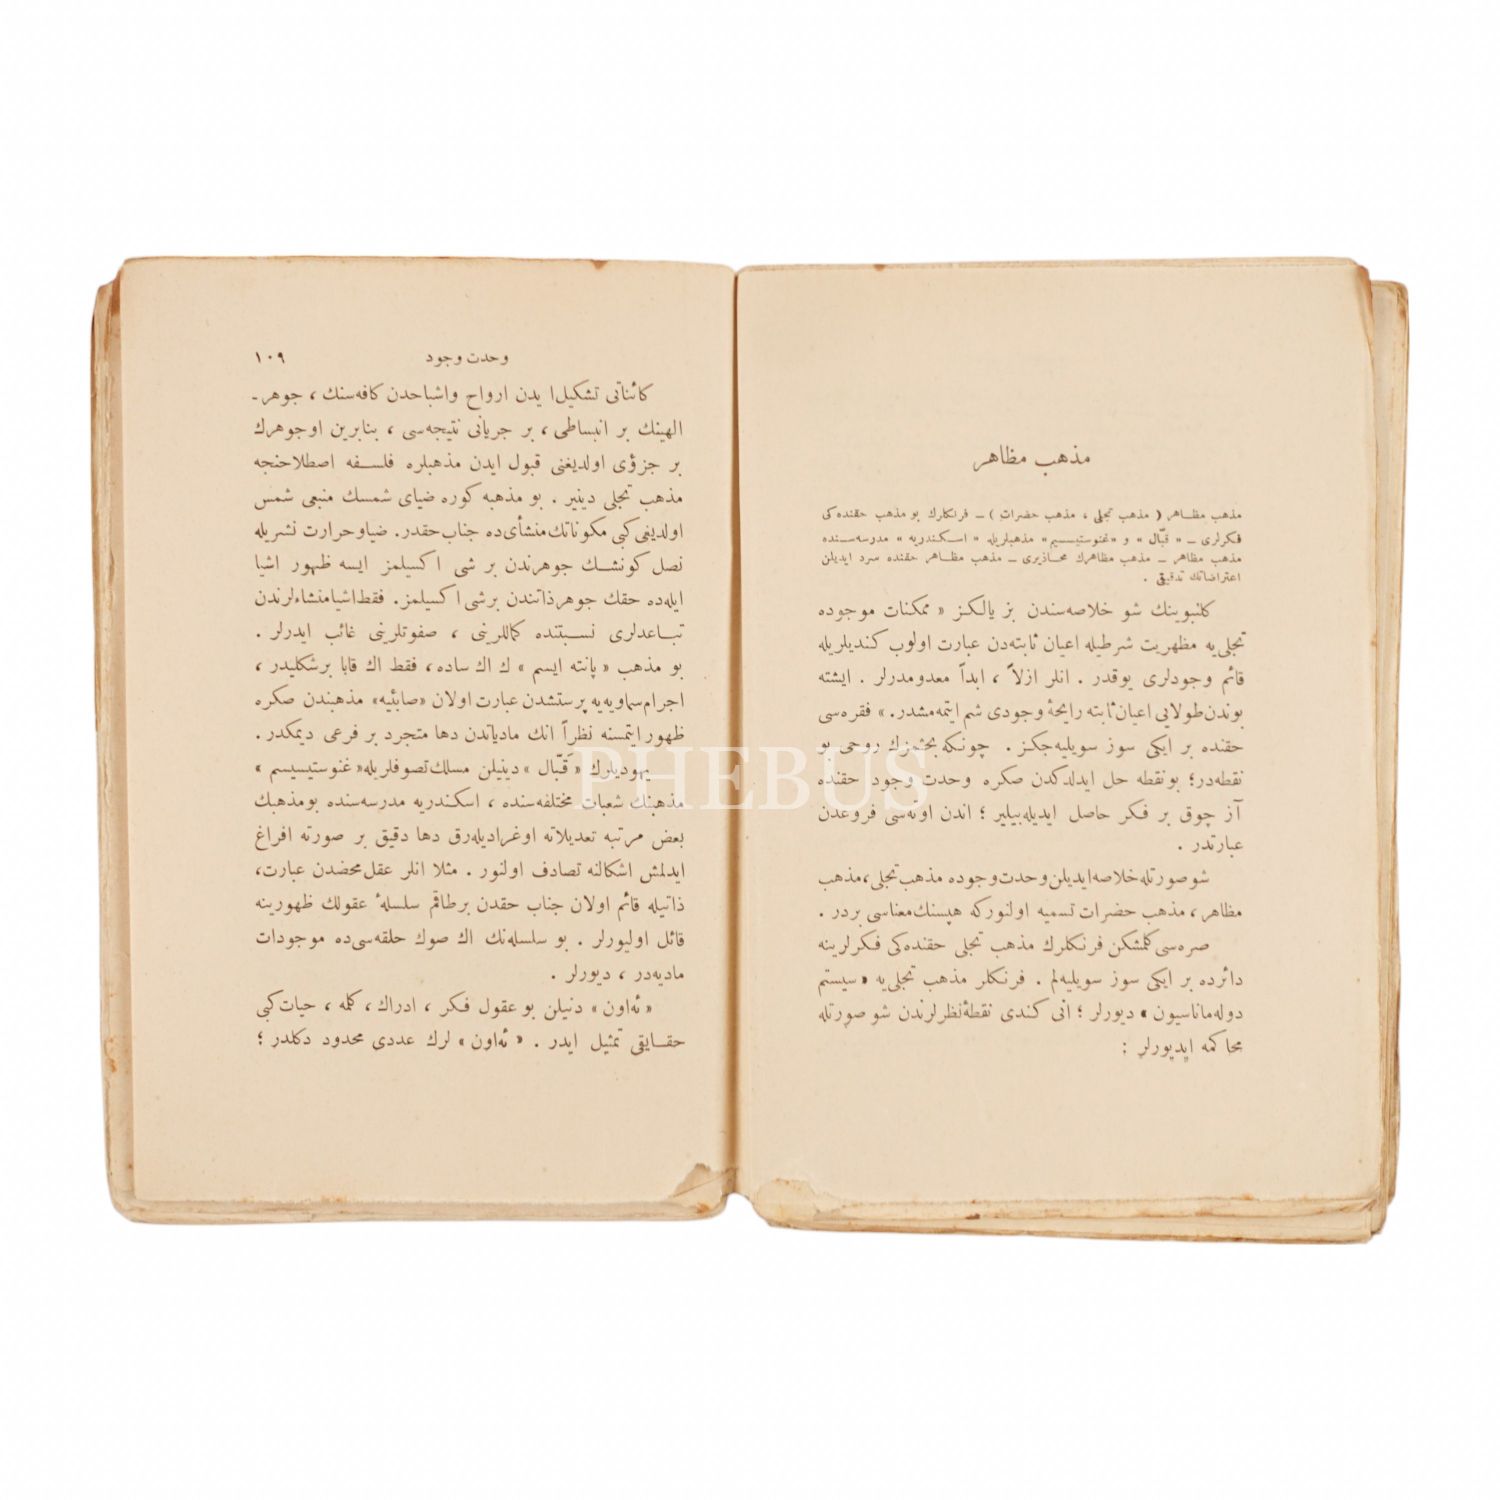 مذهب مظاهر
مذهب مظاهر ( مذهب تجلی ، مذهب حضرات ) ـ فرنكلرك بو مذهب حقنده‌كی
فكرلری ـ « قبّال » و «غنوستيسيسم» مذهبلريله « اسكندريه » مدرسه‌سنده
مذهب مظاهر ـ مذهب مظاهرك محاذيری ـ مذهب مظاهر حقنده سرد ايديلن
اعتراضاتك تدقيقی .
كلنبوينك شو خلاصه‌سندن بز يالكز « ممكنات موجوده
تجلی‌يه مظهريت شرطيله اعيان ثابته‌دن عبارت اولوب كنديلريله
قائم وجودلری يوقدر . انلر ازلاً ، ابداً معدومدرلر . ايشته
بوندن طولايی اعيان ثابته رايحهٔ وجودی شم ايتمه‌مشدر. » فقره‌سی
حقنده بر ايكی سوز سويليه‌جكز . چونكه بحثمزك روحی بو
نقطه‌در؛ بونقطه حل ايدلدكدن صكره وحدت وجود حقنده
آز چوق بر فكر حاصل ايديله‌بيلير ؛ اندن اوته‌سی فروعدن
عبارتدر .
شو صورتله خلاصه ايديلن وحدت وجوده مذهب تجلی، مذهب
مظاهر، مذهب حضرات تسميه اولنوركه هپسنك معناسی بردر .
صره‌سی كلمشكن فرنكلرك مذهب تجلی حقنده‌كی فكرلرينه
دائرده بر ايكی سوز سويليه‌لم . فرنكلر مذهب تجلی‌يه « سيستم
دوله‌ماناسيون » ديورلر ؛ انی كندی نقطهٔ نظرلرندن شو صورتله
محاكمه ايديورلر :
وحدت وجود
١٠٩
كائناتی تشكيل ايدن ارواح واشباحدن كافه‌سنك ، جوهر ـ
الهينك بر انبساطی ، بر جريانی نتيجه‌سی ، بنابرين اوجوهرك
بر جزؤی اولديغنی قبول ايدن مذهبلره فلسفه اصطلاحنجه
مذهب تجلی دينير . بو مذهبه كوره ضيای شمسك منبعی شمس
اولديغی كبی مكوناتك منشأی‌ده جناب حقدر. ضيا وحرارت نشريله
نصل كونشك جوهرندن بر شی اكسيلمز ايسه ظهور اشيا
ايله‌ده حقك جوهر ذاتندن برشی اكسيلمز. فقط اشيا منشاءلرندن
تباعدلری نسبتنده كماللرينی ، صفوتلرينی غائب ايدرلر .
بو مذهب «پانته ايسم » ك اك ساده، فقط اك قابا برشكليدر ،
اجرام سماويه‌يه پرستشدن عبارت اولان «صابئيه» مذهبندن صكره
ظهور ايتمسنه نظراً انك مادياتدن دها متجرد بر فرعی ديمكدر.
يهوديلرك « قبّال » دينيلن مسلك تصوفلريله «غنوستيسيسم »
مذهبنك شعبات مختلفه‌سنده ، اسكندريه مدرسه‌سنده بومذهبك
بعض مرتبه تعديلاته اوغراديله‌رق دها دقيق بر صورته افراغ
ايدلمش اشكالنه تصادف اولنور . مثلا انلر عقل محضدن عبارت،
ذاتيله قائم اولان جناب حقدن برطاقم سلسلهٔ عقولك ظهورينه
قائل اوليورلر . بو سلسله‌نك اك صوك حلقه‌سی‌ده موجودات
ماديه‌در ، ديورلر .
« ئه‌اون » دنيلن بو عقول فكر ، ادراك ، كلمه ، حيات كبی
حقايقی تمثيل ايدر . « ئه‌اون » لرك عددی محدود دكلدر ؛
PHEBUS